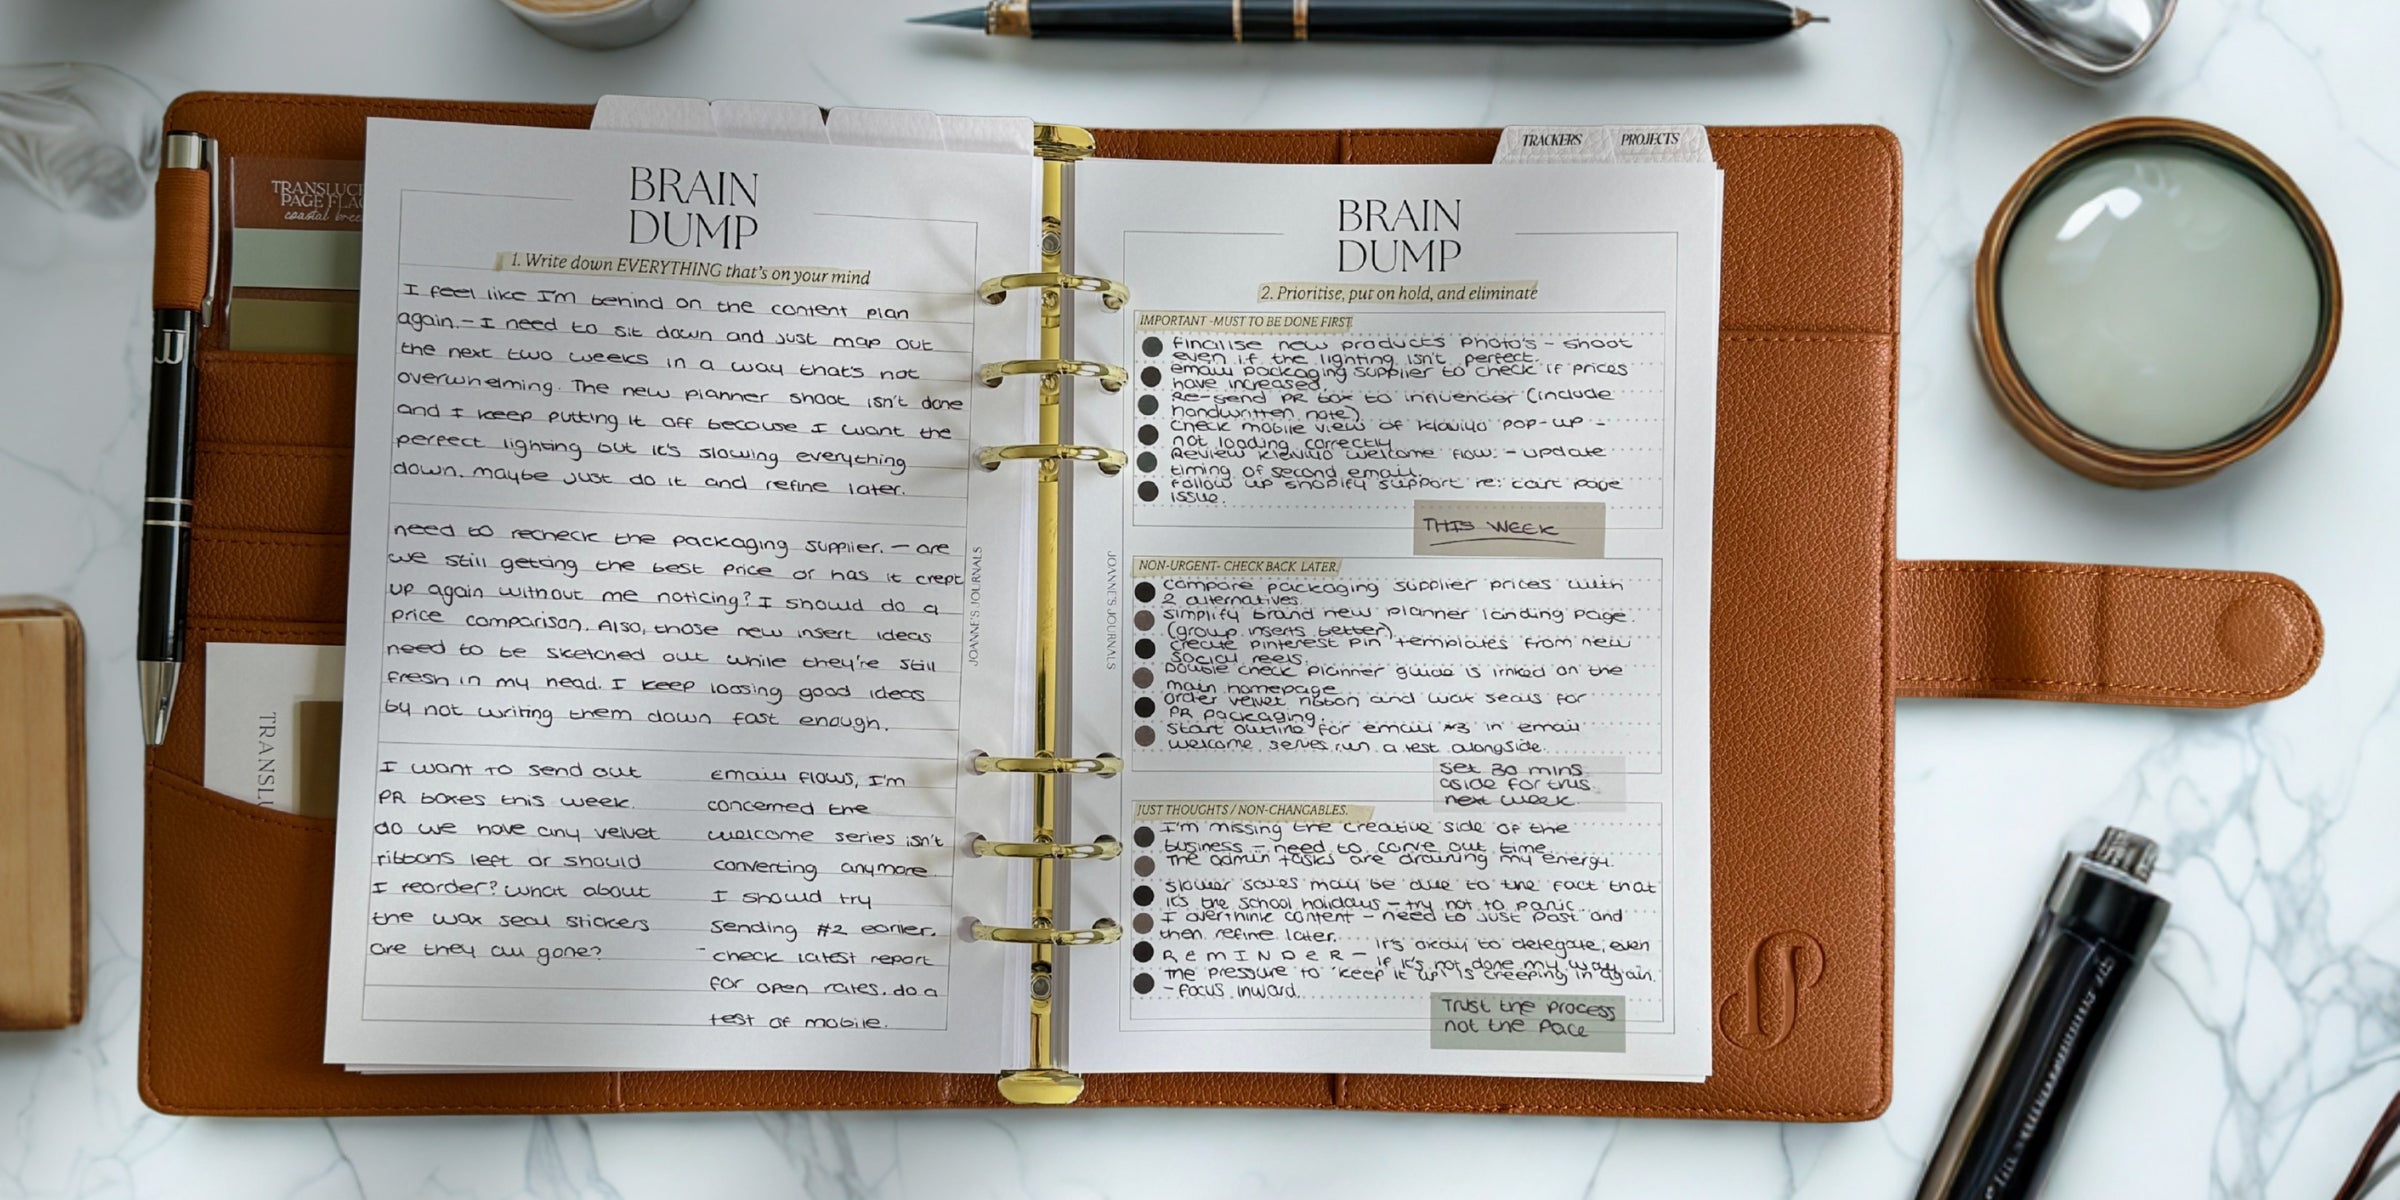 TRANSLUC
PAGE FLAG
coastal bree
TRANSLU
BRAIN
DUMP
1. Write down EVERYTHING that's on your mind
I feel like I'm behind on the content plan
again. - I need to sit down and just map out
the next two weeks in a way that's not
overwhelming. The new planner shoot isn't done
and I keep putting it off because I want the
perfect lighting but it's slowing everything
down. maybe just do it and refine later.
need to recheck the packaging supplier. - are
we still getting the best price or has it crept
up again without me noticing? I should do a
price comparison. Also, those new insert ideas
need to be sketched out while they're still
fresh in my head. I keep loosing good ideas
by not writing them down fast enough.
I want to send out
PR boxes this week.
do we have any velvet
ribbons left or should
I reorder? what about
the wax seal stickers
are they all gone?
email flows, I'm
concerned the
welcome series isn't
converting anymore.
I should try
sending #2 earlier.
- check latest report
for open rates. do a
test of mobile.
JOANNE'S JOURNALS
TRACKERS
PROJECTS
BRAIN
DUMP
2. Prioritise, put on hold, and eliminate
IMPORTANT -MUST TO BE DONE FIRST.
finalise new products photo's - shoot
even if the lighting isn't perfect.
email packaging supplier to check if prices
have increased.
Re-send PR box to influencer (include
handwritten note)
check mobile view of klaviyo pop-up -
not loading correctly
Review klaviyo welcome flow. - update
timing of second email.
follow up shopify support re: cart page
issue.
THIS WEEK
NON-URGENT- CHECK BACK LATER.
compare packaging supplier prices with
2 alternatives.
simplify brand new planner landing page.
(group inserts better)
create pinterest pin templates from new
social reels.
Double check planner guide is linked on the
main homepage
order velvet ribbon and wax seals for
PR packaging.
start outline for email #3 in email
welcome series. run a test alongside.
set 30 mins
aside for this
next week.
JUST THOUGHTS / NON-CHANGABLES.
I'm missing the creative side of the
business - need to carve out time.
The admin tasks are draining my energy.
slower sales may be due to the fact that
it's the school holidays - try not to panic.
I overthink content - need to just post and
then refine later.
REMINDER - it's okay to delegate, even
if it's not done my way.
The pressure to 'keep it up' is creeping in again.
- focus inward.
Trust the process
not the pace
JOANNE'S JOURNALS